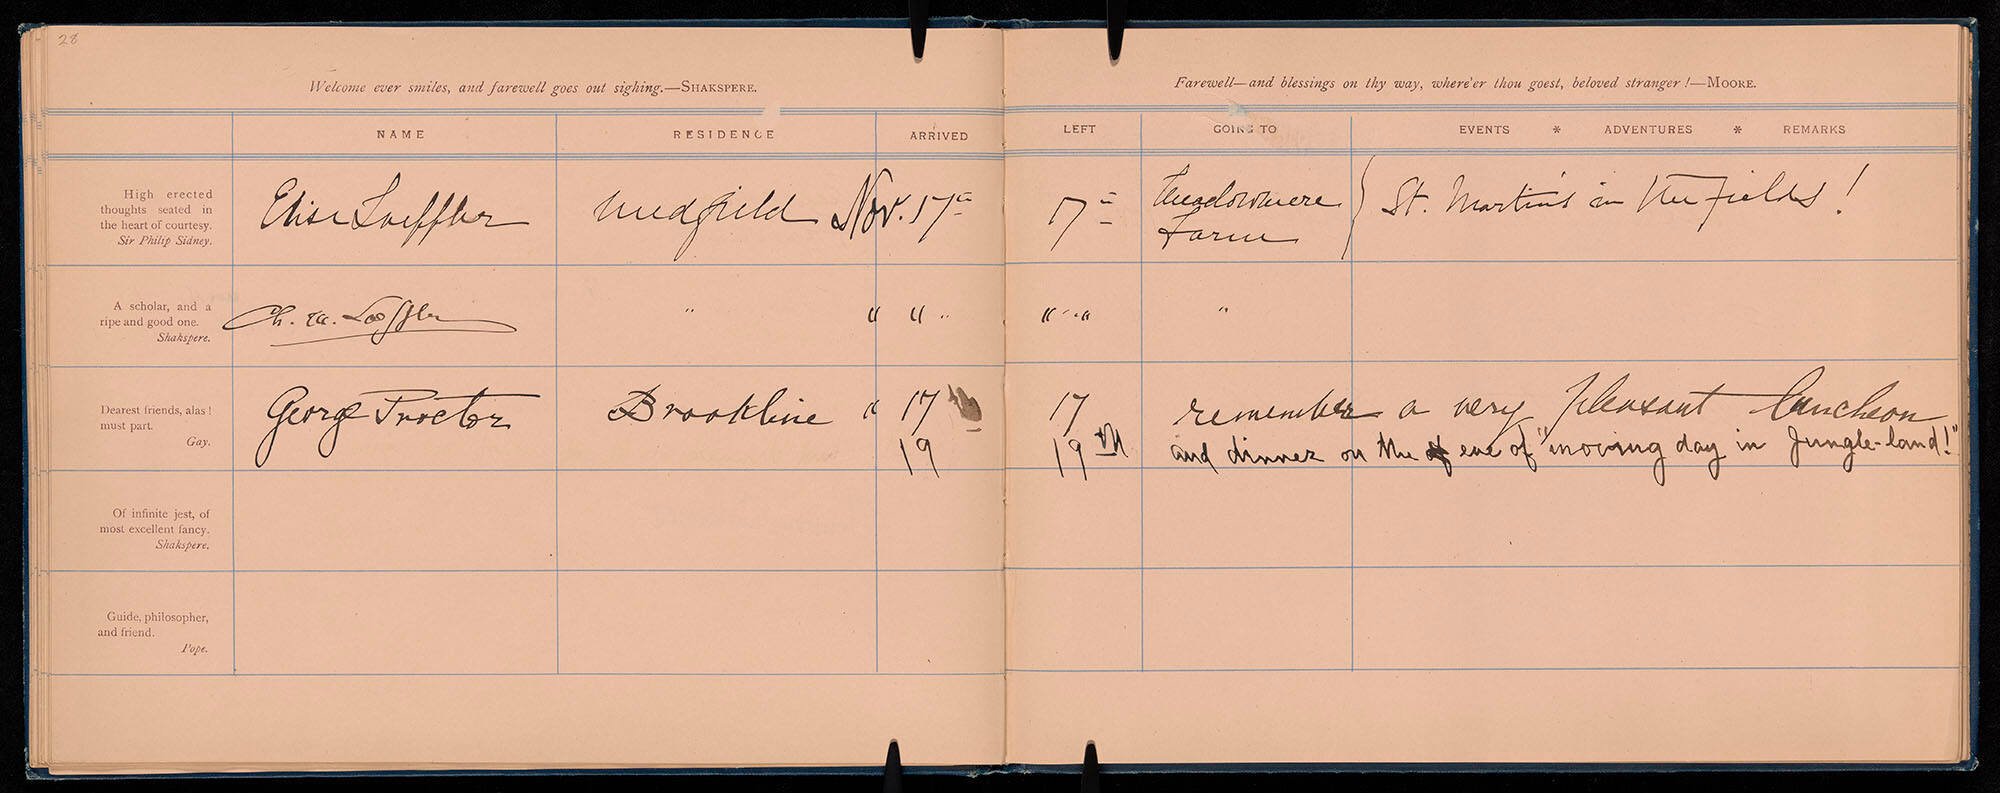 28
Welcome ever smiles, and farewell goes out sighing.—SHAKSPERE.
Farewell—and blessings on thy way, where'er thou goest, beloved stranger!—MOORE.
NAME RESIDENCE ARRIVED LEFT GOING TO EVENTS * ADVENTURES * REMARKS
High erected
thoughts seated in
the heart of courtesy.
Sir Philip Sidney.
Elise Loeffler Medfield Nov. 17th 17th Meadowmere
Farm
St. Martin's in the fields!
A scholar, and a
ripe and good one.
Shakspere.
Ch. M. Loeffler " " " " " "
Dearest friends, alas!
must part.
Gay.
George Proctor Brookline " 17 17 remember a very pleasant luncheon
19 19th and dinner on the eve of "moving day in Jungle-land!"
Of infinite jest, of
most excellent fancy.
Shakspere.
Guide, philosopher,
and friend.
Pope.